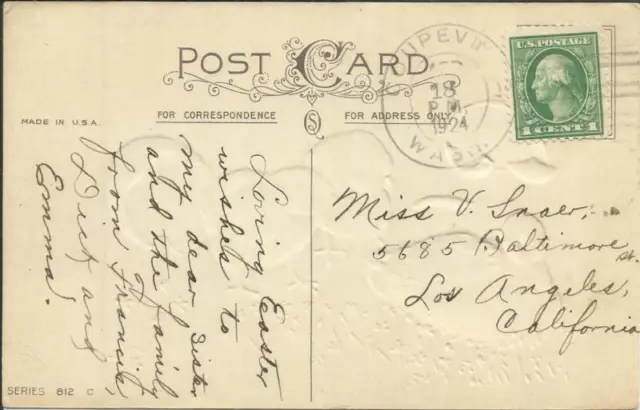 POST CARD
FOR CORRESPONDENCE
FOR ADDRESS ONLY
MADE IN U.S.A.
Loving Easter
wishes to
my dear Sister
and the family
from Francik,
Dick and
Emma.
COUPEVIL
18
P.M.
1924
WASH.
U.S. POSTAGE
1 CENT 1
Miss V. Snaer,
5685 Baltimore st.
Los Angeles,
California
SERIES 812 C